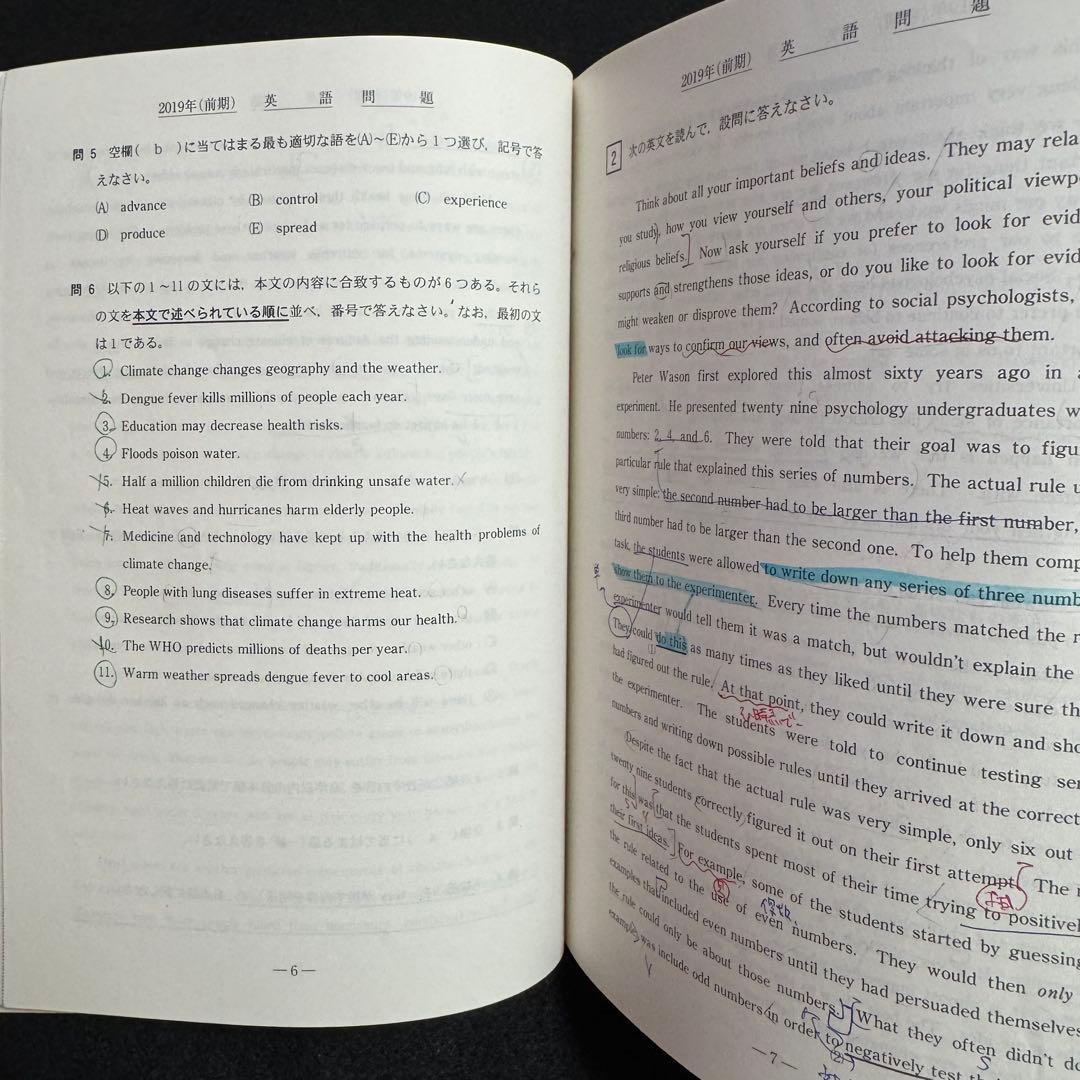 2019年(前期) 英 語 問 題
問 5 空欄( b )に当てはまる最も適切な語を(A)~(E)から1つ選び,記号で答
えなさい。
(A) advance (B) control (C) experience
(D) produce (E) spread
問 6 以下の1~11の文には,本文の内容に合致するものが6つある。それら
の文を本文で述べられている順に並べ,番号で答えなさい。なお,最初の文
は1である。
1. Climate change changes geography and the weather.
2. Dengue fever kills millions of people each year.
3. Education may decrease health risks.
4. Floods poison water.
5. Half a million children die from drinking unsafe water.
6. Heat waves and hurricanes harm elderly people.
7. Medicine and technology have kept up with the health problems of
climate change.
8. People with lung diseases suffer in extreme heat.
9. Research shows that climate change harms our health.
10. The WHO predicts millions of deaths per year.
11. Warm weather spreads dengue fever to cool areas.
— 6 —
2019年(前期) 英 語 問 題
2 次の英文を読んで,設問に答えなさい。
Think about all your important beliefs and ideas. They may rela
you study, how you view yourself and others, your political viewp
religious beliefs. Now ask yourself if you prefer to look for evid
supports and strengthens those ideas, or do you like to look for evid
might weaken or disprove them? According to social psychologists,
look for ways to confirm our views, and often avoid attacking them.
Peter Wason first explored this almost sixty years ago in a
experiment. He presented twenty nine psychology undergraduates w
numbers: 2, 4, and 6. They were told that their goal was to figu
particular rule that explained this series of numbers. The actual rule u
very simple: the second number had to be larger than the first number,
third number had to be larger than the second one. To help them comp
task, the students were allowed to write down any series of three numb
show them to the experimenter. Every time the numbers matched the r
experimenter would tell them it was a match, but wouldn't explain the
They could do this as many times as they liked until they were sure th
(1)
had figured out the rule. At that point, they could write it down and sho
the experimenter. The students were told to continue testing ser
numbers and writing down possible rules until they arrived at the correct
Despite the fact that the actual rule was very simple, only six out
twenty nine students correctly figured it out on their first attempt. The r
for this was that the students spent most of their time trying to positivel
their first ideas. For example, some of the students started by guessing
the rule related to the use of even numbers. They would then only
examples that included even numbers until they had persuaded themselves
the rule could only be about those numbers. What they often didn't do
examples was include odd numbers in order to negatively test th
(2)
— 7 —